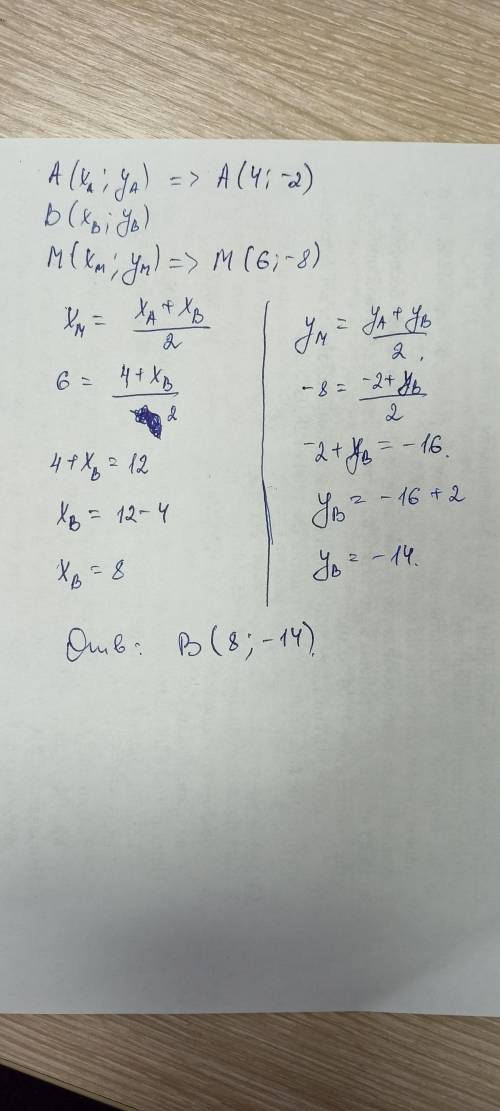 A(x_A; y_A) => A(4; -2)
B(x_B; y_B)
M(x_M; y_M) => M(6; -8)
x_M = (x_A + x_B)/2
6 = (4 + x_B)/2
4 + x_B = 12
x_B = 12 - 4
x_B = 8
y_M = (y_A + y_B)/2.
-8 = (-2 + y_B)/2
-2 + y_B = -16.
y_B = -16 + 2
y_B = -14.
Отв: B(8; -14).